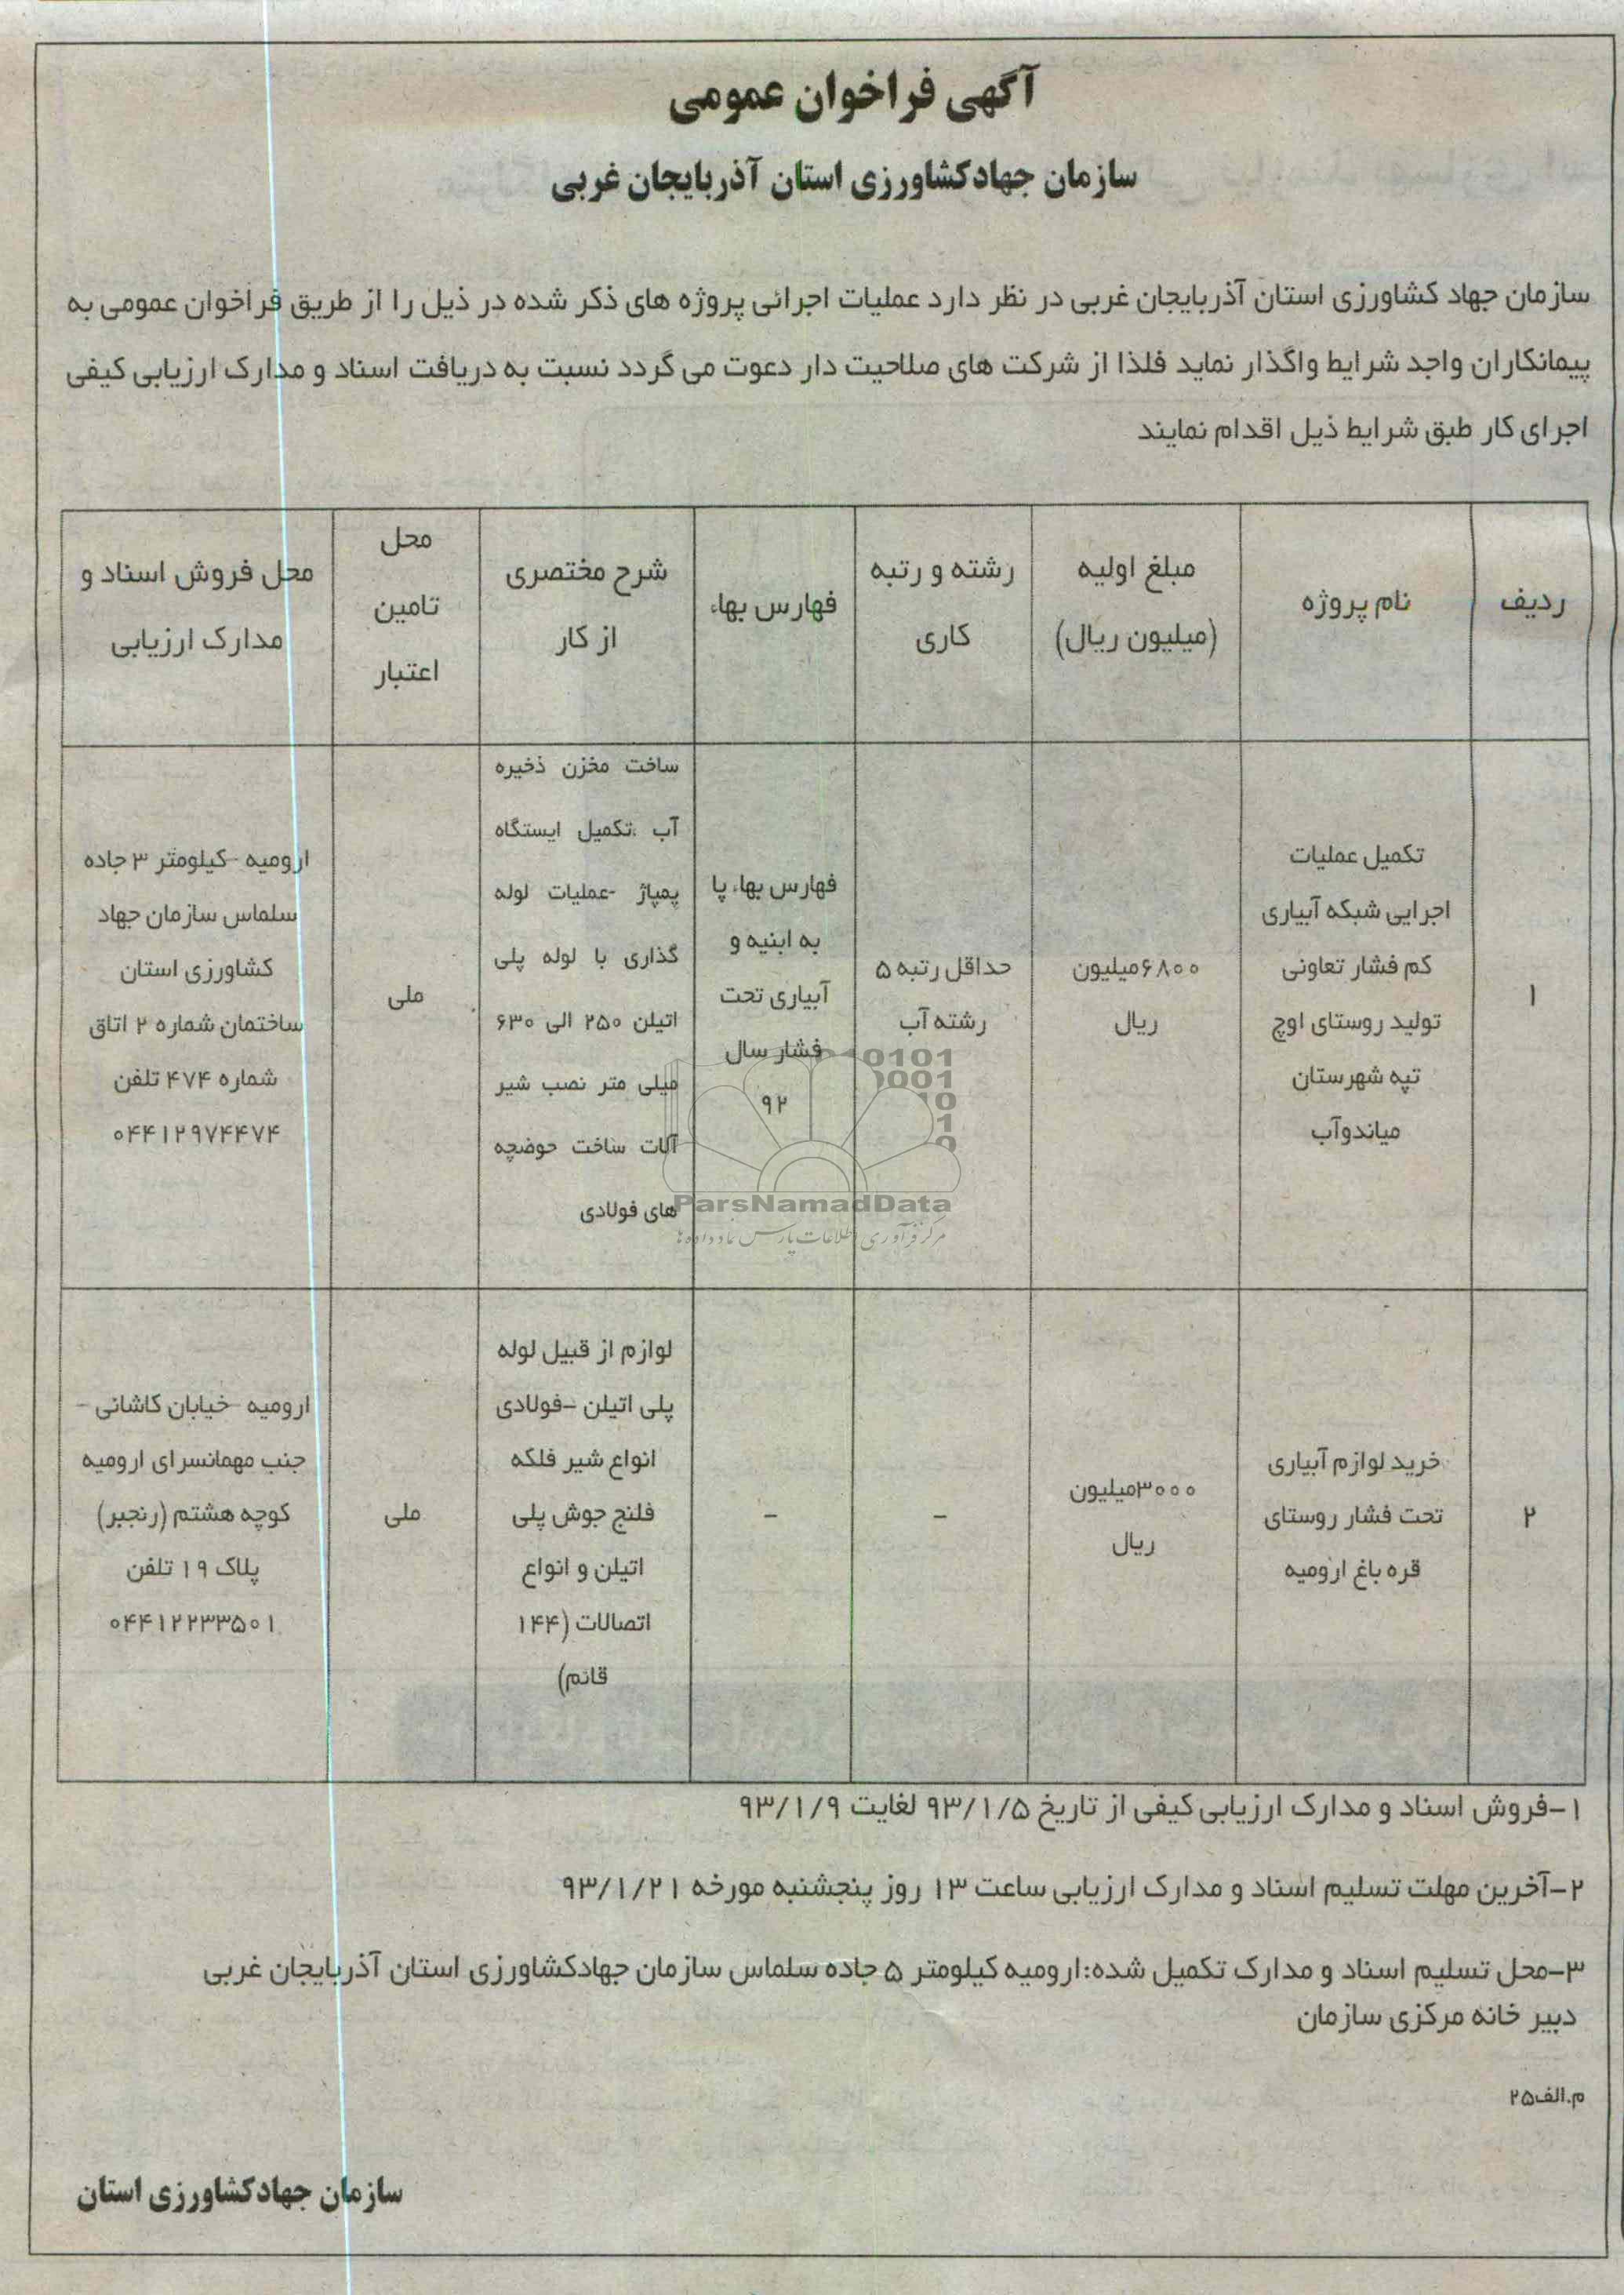 آگهی فراخوان عمومی
سازمان جهادکشاورزی استان آذربایجان غربی
سازمان جهاد کشاورزی استان آذربایجان غربی در نظر دارد عملیات اجرائی پروژه های ذکر شده در ذیل را از طریق فراخوان عمومی به
پیمانکاران واجد شرایط واگذار نماید فلذا از شرکت های صلاحیت دار دعوت می گردد نسبت به دریافت اسناد و مدارک ارزیابی کیفی
اجرای کار طبق شرایط ذیل اقدام نمایند
ردیف
نام پروژه
مبلغ اولیه
(میلیون ریال)
رشته و رتبه
کاری
فهارس بهاء
شرح مختصری
از کار
محل
تامین
اعتبار
محل فروش اسناد و
مدارک ارزیابی
۱
تکمیل عملیات
اجرایی شبکه آبیاری
کم فشار تعاونی
تولید روستای اوچ
تپه شهرستان
میاندوآب
۶۸۰۰میلیون
ریال
حداقل رتبه ۵
رشته آب
فهارس بهاء پا
به ابنیه و
آبیاری تحت
فشار سال
۹۲
ساخت مخزن ذخیره
آب ،تکمیل ایستگاه
پمپاژ -عملیات لوله
گذاری با لوله پلی
اتیلن ۲۵۰ الی ۶۳۰
میلی متر نصب شیر
آلات ساخت حوضچه
های فولادی
ملی
ارومیه -کیلومتر ۳ جاده
سلماس سازمان جهاد
کشاورزی استان
ساختمان شماره ۲ اتاق
شماره ۴۷۴ تلفن
۰۴۴۱۲۹۷۴۴۷۴
۲
خرید لوازم آبیاری
تحت فشار روستای
قره باغ ارومیه
۳۰۰۰میلیون
ریال
-
-
لوازم از قبیل لوله
پلی اتیلن -فولادی
انواع شیر فلکه
فلنج جوش پلی
اتیلن و انواع
اتصالات (۱۴۴
قائم)
ملی
ارومیه -خیابان کاشانی -
جنب مهمانسرای ارومیه
کوچه هشتم (رنجبر)
پلاک ۱۹ تلفن
۰۴۴۱۲۲۳۳۵۰۱
ParsNamadData
مرکز فرآوری اطلاعات پارس نماد داده ها
۱-فروش اسناد و مدارک ارزیابی کیفی از تاریخ ۹۳/۱/۵ لغایت ۹۳/۱/۹
۲-آخرین مهلت تسلیم اسناد و مدارک ارزیابی ساعت ۱۳ روز پنجشنبه مورخه ۹۳/۱/۲۱
۳-محل تسلیم اسناد و مدارک تکمیل شده:ارومیه کیلومتر ۵ جاده سلماس سازمان جهادکشاورزی استان آذربایجان غربی
دبیر خانه مرکزی سازمان
م.الف۲۵
سازمان جهادکشاورزی استان